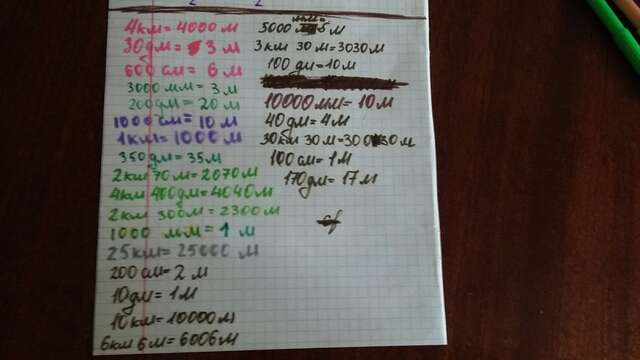 4км = 4000 м
30дм = 3 м
600 см = 6 м
3000 мм = 3 м
200дм = 20 м
1000 см = 10 м
1км = 1000 м
350дм = 35м
2км 70м = 2070м
4км 400дм = 4040м
2км 300м = 2300м
1000 мм = 1 м
25км = 25000 м
200 см = 2 м
10дм = 1м
10км = 10000м
6км 6м = 6006м
5000 мм = 5 м
3 км 30 м = 3030м
100 дм = 10м
10000мм = 10 м
40дм = 4м
30км 30м = 30030м
100 см = 1м
170дм = 17м